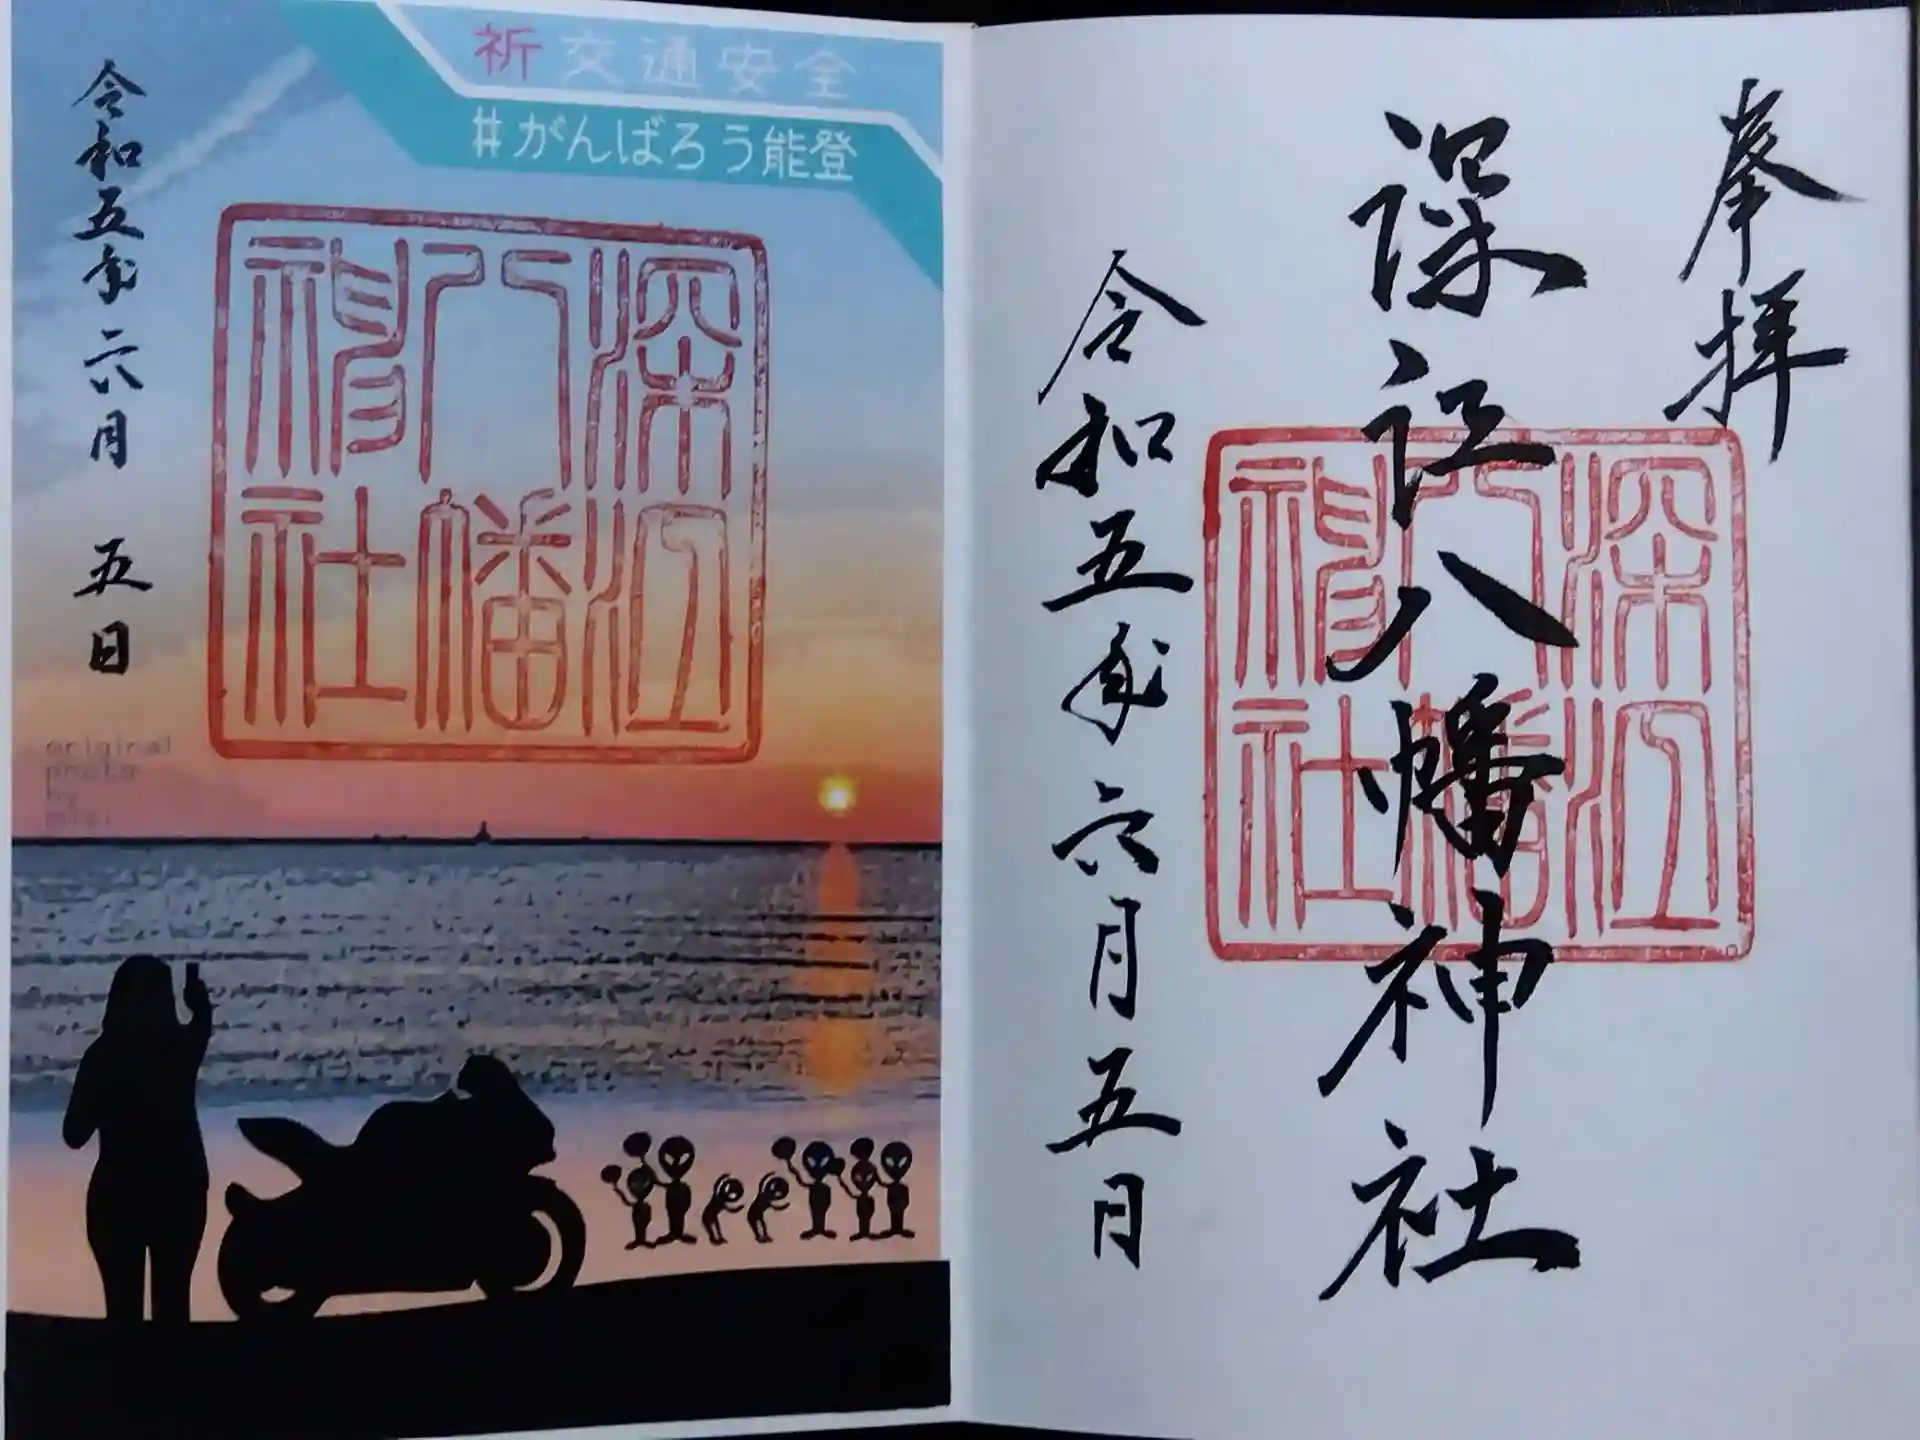 奉拝
深江八幡神社
令和五年六月五日
深江
八幡
神社
祈 交通安全
#がんばろう能登
深江
八幡
神社
令和五年六月 五日
original
photo
by